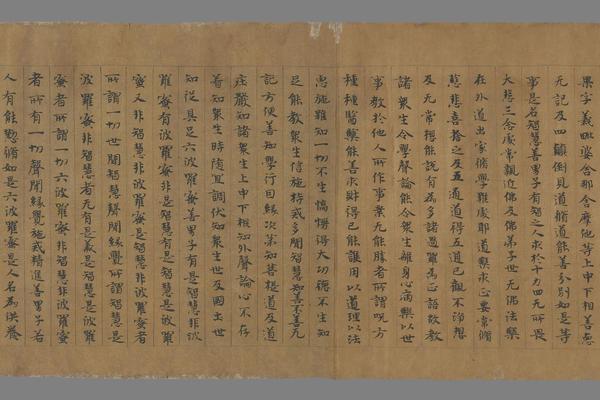 果字義毗婆舍那舍摩他等上中下相善惡
无記及四顛倒見道脩道能善分別如是等
事是名智慧善男子有智之人求於十力四无所畏
大悲三念處常親近佛及佛弟子世无佛法樂
在外道出家脩學雖處耶道樂求正要常脩
慈悲喜捨之及五通道得五通已觀不淨想
及无常想能說有為多諸過罪為正語故教
諸眾生令學聲論能令眾生離身心病樂以世
事教於他人所作事業无能勝者所謂呪方
種種醫藥能善求財得已能護用以道理以法
惠施雖知一切不生憍慢得大功德不生知
足能教眾生信施持戒多聞智慧知善不善无
記方便善知學行因緣次第知菩提道及道
莊嚴知諸眾生上中下根知外聲論心不存
善知眾生時隨宜調伏知眾生世及國土世
知從具足六波羅蜜善男子有是智慧非波
羅蜜有波羅蜜非是智慧有是智慧是波羅
蜜又非智慧非波羅蜜是智慧非波羅蜜者
所謂一切世間智慧聲聞緣覺所謂智慧是
波羅蜜非智慧者无有是義是智慧是波羅
蜜者所謂一切六波羅蜜非智慧非波羅蜜
者所有一切聲聞緣覺施戒精進善男子若
人有能懃脩如是六波羅蜜是人名為供養